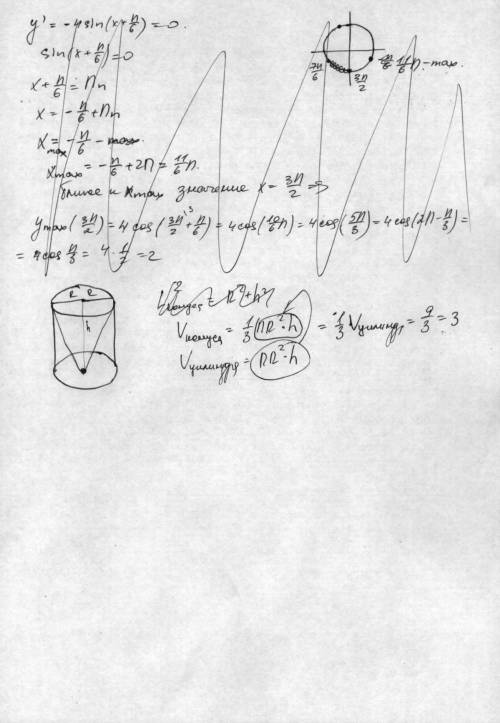 y' = -4 sin(x + π/6) = 0.
sin(x + π/6) = 0
x + π/6 = πn
x = -π/6 + πn
x max = -π/6 - max.
x max = -π/6 + 2π = 11/6 π.
7π/6
3π/2
11/6 π - max.
Ближе к x max значение x = 3π/2 =>
y max (3π/2) = 4 cos(3π/2 + π/6) = 4 cos(10/6 π) = 4 cos(5π/3) = 4 cos(2π - π/3) =
= 4 cos π/3 = 4 · 1/2 = 2
R R
h
V конуса = 1/3 πR² · h = 1/3 V цилиндр = 9/3 = 3
V цилиндра = πR² · h